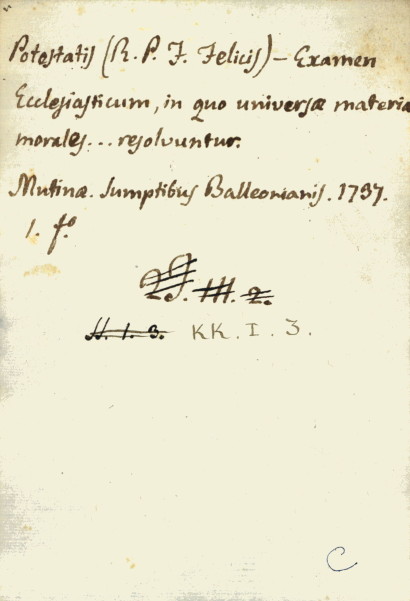 Potestatis (R. P. F. Felicis) - Examen
Ecclesiasticum, in quo universæ materia
morales... resolvuntur.
Mutinæ. Sumptibus Balleonianis. 1737.
1. fº
III. 2.
H. 1. 3. KK. I. 3.
C